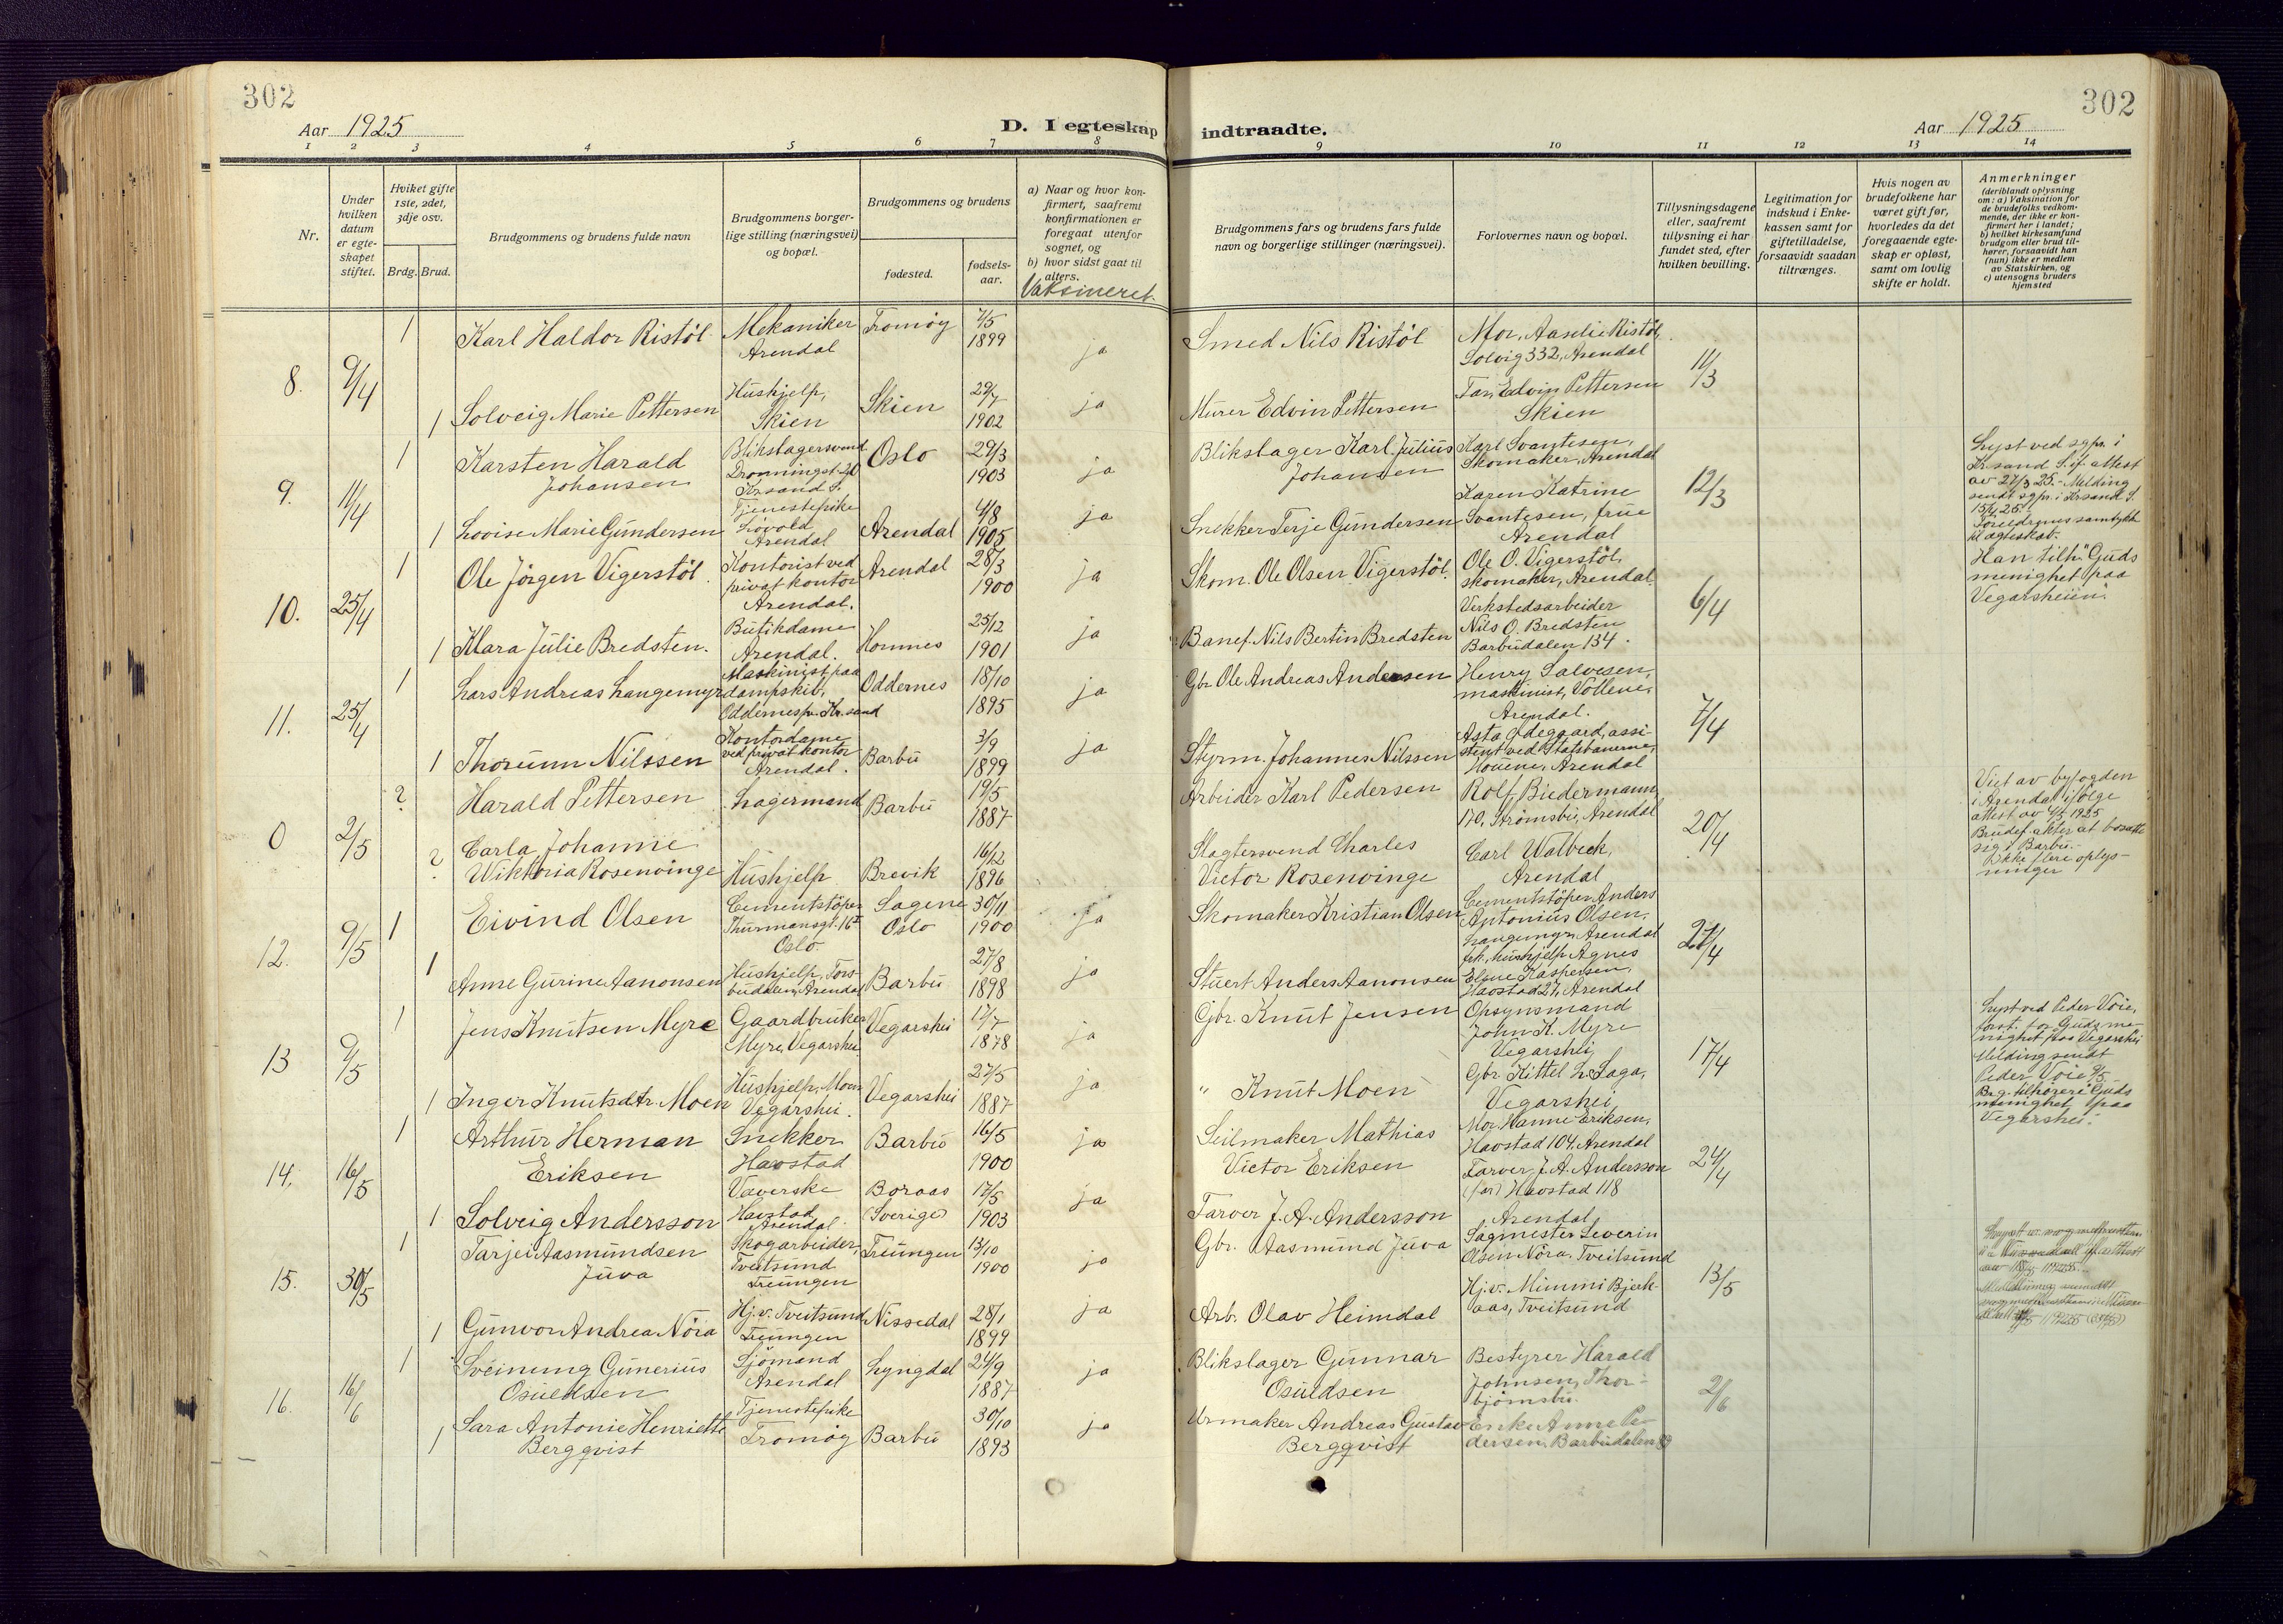 302
Aar 1925
D. I egteskap
indtraadte.
Aar 1925
302
1 2 3 4 5 6 7 8 9 10 11 12 13 14
Nr.
Under hvilken datum er egteskapet stiftet.
Hviket gifte 1ste, 2det, 3dje osv.
Brdg. Brud.
Brudgommens og brudens fulde navn
Brudgommens borgerlige stilling (næringsvei) og bopæl.
Brudgommens og brudens
fødested.
fødselsaar.
a) Naar og hvor konfirmert, saafremt konfirmationen er foregaat utenfor sognet, og
b) hvor sidst gaat til alters.
Vaksineret.
Brudgommens fars og brudens fars fulde navn og borgerlige stillinger (næringsvei).
Forlovernes navn og bopæl.
Tillysningsdagene eller, saafremt tillysning ei har fundet sted, efter hvilken bevilling.
Legitimation for indskud i Enkekassen samt for giftetilladelse, forsaavidt saadan tiltrænges.
Hvis nogen av brudefolkene har været gift før, hvorledes da det foregaaende egteskap er opløst, samt om lovlig skifte er holdt.
Anmerkninger
(deriblandt oplysning om: a) Vaksination for de brudefolks vedkommende, der ikke er konfirmert her i landet;
b) hvilket kirkesamfund brudgom eller brud tilhører, forsaavidt han (hun) ikke er medlem av Statskirken, og
c) utensogns bruders hjemsted
8. 9/4
1 Karl Haldor Ristøl. Mekaniker Arendal Tromøy 7/5 1899 ja Smed Nils Ristøl Mor, Aaselie Ristøl, Solvig 332, Arendal 11/3
1 Solveig Marie Pettersen Hushjelp, Skien Skien 29/7 1902 ja Murer Edvin Pettersen Far, Edvin Pettersen Skien
9. 11/4
1 Karsten Harald Johansen Blikslagersvend Dronningst. 20 Krsand S. Oslo 29/3 1903 ja Blikslager Karl Julius Johansen Karl Svantesen, Skomaker, Arendal 12/3
Lyst ved sgpr. i Kr.sand S. if. attest av 27/3 25. - Melding sendt sgpr. i Krsand S. 15/4 25. Foreldrenes samtykke til ægteskab.
1 Lovise Marie Gundersen Tjenestepike Løvold Arendal Arendal 4/8 1905 ja Snekker Terje Gundersen Karen Katrine Svantesen, frue Arendal
10. 25/4
1 Ole Jörgen Vigerstöl. Kontorist ved privat kontor Arendal. Arendal 28/3 1900 ja Skom. Ole Olsen Vigerstöl. Ole O. Vigerstöl, skomaker, Arendal. 6/4
Han tilh. "Guds menighet paa Vegarsheien."
1 Klara Julie Bredsten. Butikdame Arendal. Homnes 25/12 1901 ja Banef. Nils Bertin Bredsten Verkstedsarbeider Nils O. Bredsten Barbudalen 134.
11. 25/4
1 Lars Andreas Langemyr Maskinist paa dampskib, Oddernes pr. Kr.sand Oddernes 18/10 1895 ja Gbr Ole Andreas Andersen Henry Salvesen, maskinist, Vollene, Arendal. 7/4
1 Thorunn Nilssen Kontordame ved privat kontor Arendal. Barbu 3/9 1899 ja Styrm. Johannes Nilssen Asta Ødegaard, assistent ved Statsbanerne, Houene, Arendal
0 2/5
2 Harald Pettersen Lagermand Barbu 19/5 1887 Arbeider Karl Pedersen Rolf Biedermann, 170, Strømsbu, Arendal 20/4
Viet av byfogden i Arendal ifølge attest av 4/5 1925 Brudef. akter at bosætte sig i Barbu. - Ikke flere oplysninger
? Carla Johanne Wiktoria Rosenvinge Hushjelp Brevik 16/12 1896 Slagtersvend Charles Victor Rosenvinge Carl Walbeck, Arendal
12. 9/5
1 Eivind Olsen Cementstöper Thurmansgt. 16 I Oslo Sagene Oslo 30/11 1900 ja Skomaker Kristian Olsen Cementstöper Anders Antonius Olsen, Langemyr, Arendal 27/4
1 Anne Gurine Aanonsen Hushjelp, Torsbudalen, Arendal Barbu 27/8 1898 ja Stuert Anders Aanonsen frk. hushjelp Agnes Elene Kaspersen, Havstad 27, Arendal
13 9/5
1 Jens Knutsen Myre Gaardbruker Myre, Vegarshei Vegarshei 12/7 1878 ja Gbr. Knut Jensen Opsynsmand John K. Myre Vegarshei 17/4
Lyst ved Peder Voie, forst. for Guds menighet paa Vegarshei Melding sendt Peder Voie 9/5 Brg. tilhører "Guds menighet paa Vegarshei."
1 Inger Knutsdtr. Moen Hushjelp, Moen Vegarshei. Vegarshei 27/5 1887 ja " Knut Moen Gbr. Kittel L. Saga, Vegarshei
14. 16/5
1 Arthur Herman Eriksen Snekker Havstad Barbu 16/5 1900 ja Seilmaker Mathias Victor Eriksen Mor, Hanne Eriksen, Havstad 104, Arendal 24/4
1 Solveig Andersson Væverske Havstad Arendal. Boraas (Sverige) 17/5 1903 ja Farver J. A. Andersson Farver, J. A. Andersson (far) Havstad 118 Arendal
15. 30/5
1 Tarjei Aasmundsen Juva Skogarbeider, Tveitsund Treungen Treungen 13/10 1900 ja Gbr. Aasmund Juva Sagmester Severin Olsen Nöra, Tveitsund 13/5
1 Gunvor Andrea Nöra Hj.v. Tveitsund Treungen Nissedal 28/1 1899 ja Arb. Olav Heimdal Hj.v. Mimmi Bjerkaas, Tveitsund
16. 16/6
1 Sveinung Gunerius Osuldsen Sjömand Arendal Lyngdal 24/9 1887 ja Blikslager Gunnar Osuldsen Bestyrer Harald Johnsen, Thorbjörnsbu. 2/6
1 Sara Antonie Henriette Bergqvist Tjenestepike Tromøy Barbu 30/10 1893 ja Urmaker Andreas Gustav Bergqvist Enke Anne Pedersen, Barbudalen